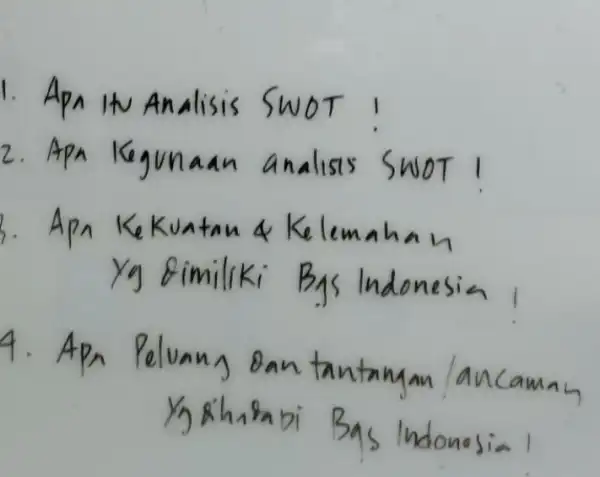 1. Apa Itu Analisis SWOT !
2. Apa Kegunaan analisis SWOT !
3. Apa Kekuatan & Kelemahan
Yg dimiliki Bgs Indonesia !
4. Apa Peluang dan tantangan/ancaman
Yg dihadapi Bgs Indonesia !